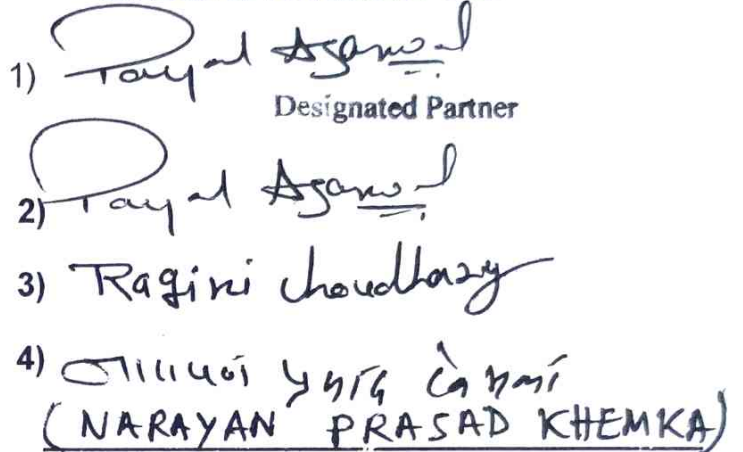 1) Payal Agarwal
Designated Partner
2) Payal Agarwal
3) Ragini Choudhary
4) नारायण प्रसाद खेमका
(NARAYAN PRASAD KHEMKA)